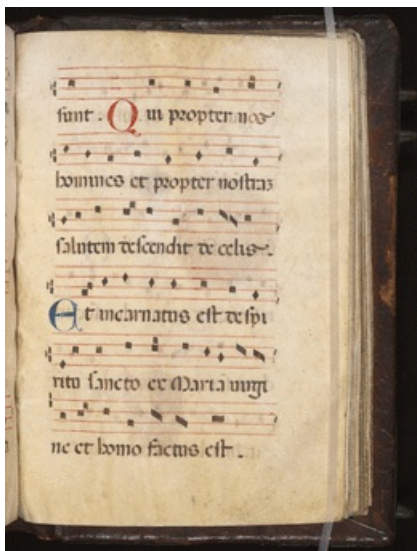 sunt. Qui propter nos
homines et propter nostraz
salutem descendit de celis.
Et incarnatus est de spi
ritu sancto ex Maria uirgi
ne et homo factus est.